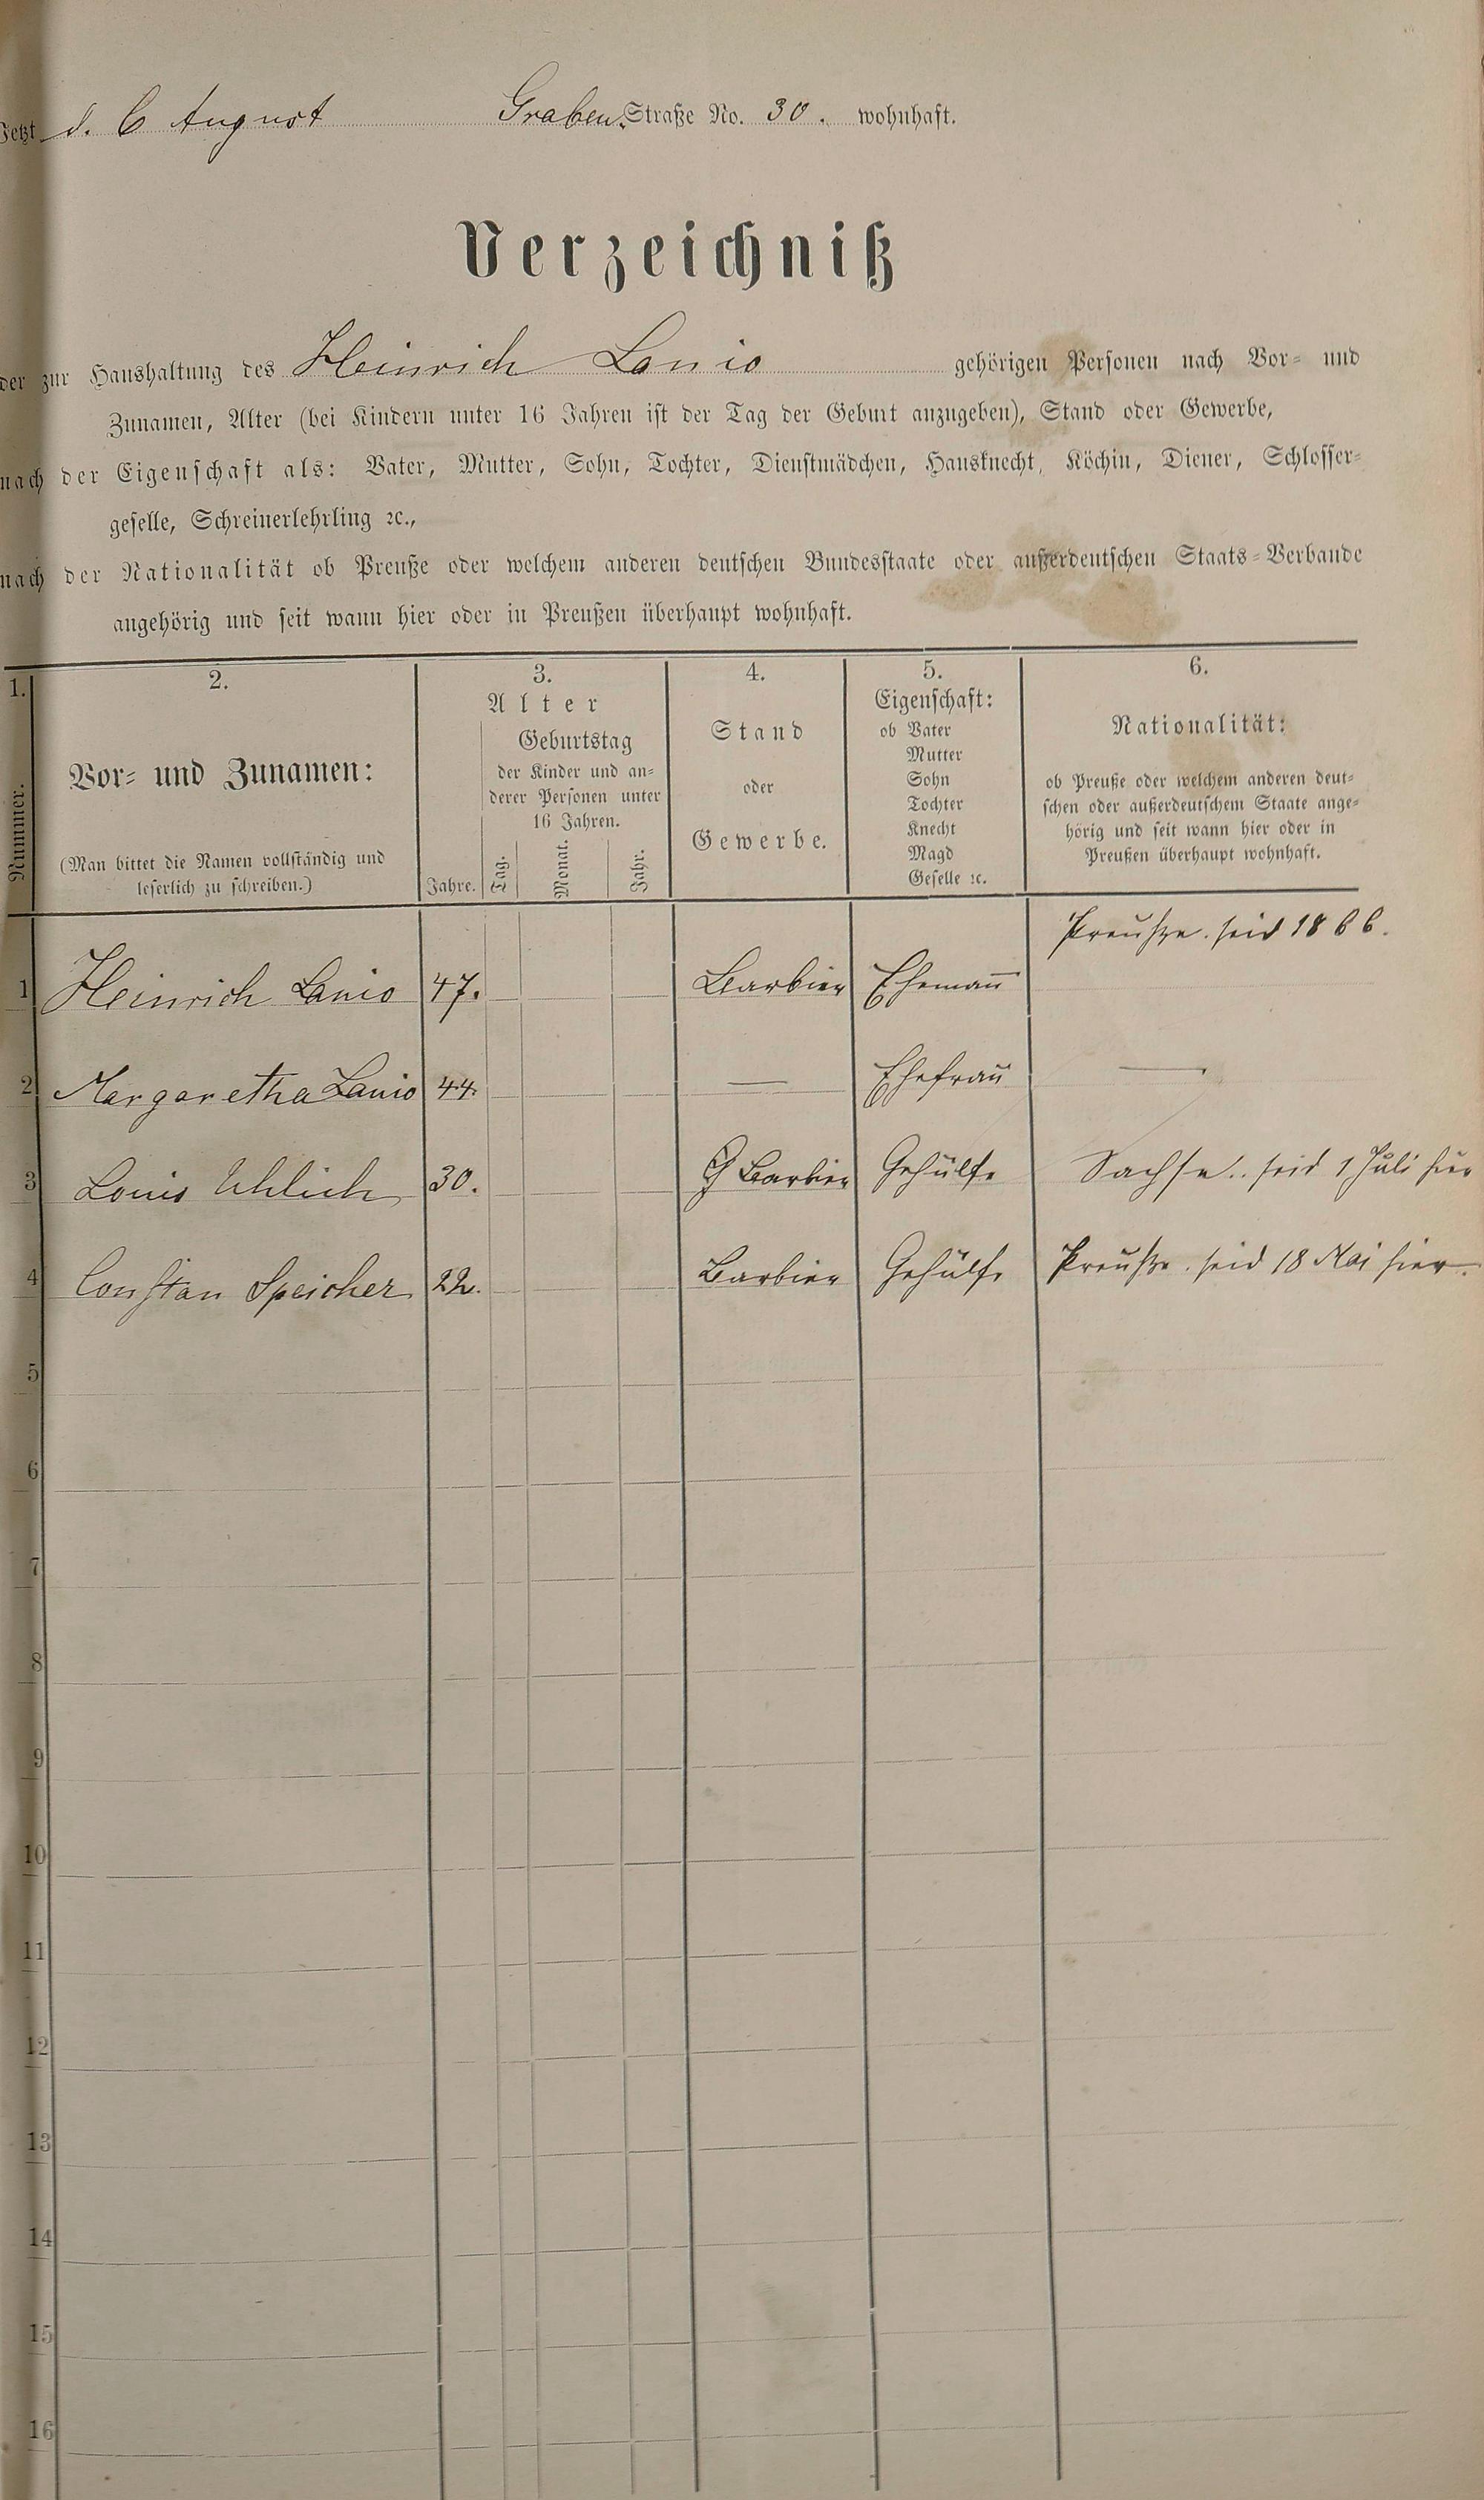 Jetzt d. 6 August Graben Straße No. 30. wohnhaft.
Verzeichniß
der zur Haushaltung des Heinrich Lanio gehörigen Personen nach Vor- und
Zunamen, Alter (bei Kindern unter 16 Jahren ist der Tag der Geburt anzugeben), Stand oder Gewerbe,
nach der Eigenschaft als: Vater, Mutter, Sohn, Tochter, Dienstmädchen, Hausknecht, Köchin, Diener, Schlosser-
geselle, Schreinerlehrling ꝛc.,
nach der Nationalität ob Preuße oder welchem anderen deutschen Bundesstaate oder außerdeutschen Staats-Verbande
angehörig und seit wann hier oder in Preußen überhaupt wohnhaft.
1.
Nummer.
2.
Vor- und Zunamen:
(Man bittet die Namen vollständig und
leserlich zu schreiben.)
3.
Alter
Jahre.
Geburtstag
der Kinder und an-
derer Personen unter
16 Jahren.
Tag. Monat. Jahr.
4.
Stand
oder
Gewerbe.
5.
Eigenschaft:
ob Vater
Mutter
Sohn
Tochter
Knecht
Magd
Geselle ꝛc.
6.
Nationalität:
ob Preuße oder welchem anderen deut-
schen oder außerdeutschem Staate ange-
hörig und seit wann hier oder in
Preußen überhaupt wohnhaft.
1 Heinrich Lanio 47. Barbier Ehemañ Preuße. seid 1866.
2 Margaretha Lanio 44. — Ehefrau —
3 Louis Uhlich 30. Barbier Gehülfe Sachse.. seid 1 Juli hier
4 Constan Speicher 22. Barbier Gehülfe Preuße. seid 18 Mai hier.
5
6
7
8
9
10
11
12
13
14
15
16